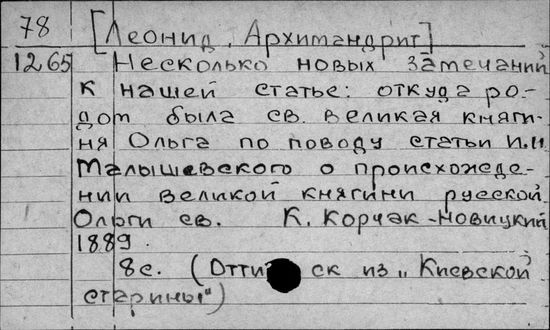 78 [Леонид, Архимандрит]
1265 Несколько новых замечаний
к нашей статье: откуда ро-
дом была св. великая княги-
ня Ольга по поводу статьи И.И.
Малышевского о происхожде-
нии великой княгини русской
Ольги св. К. Корчак-Новицкий
1889.
8с. (Оттиск из „Киевской
старины")